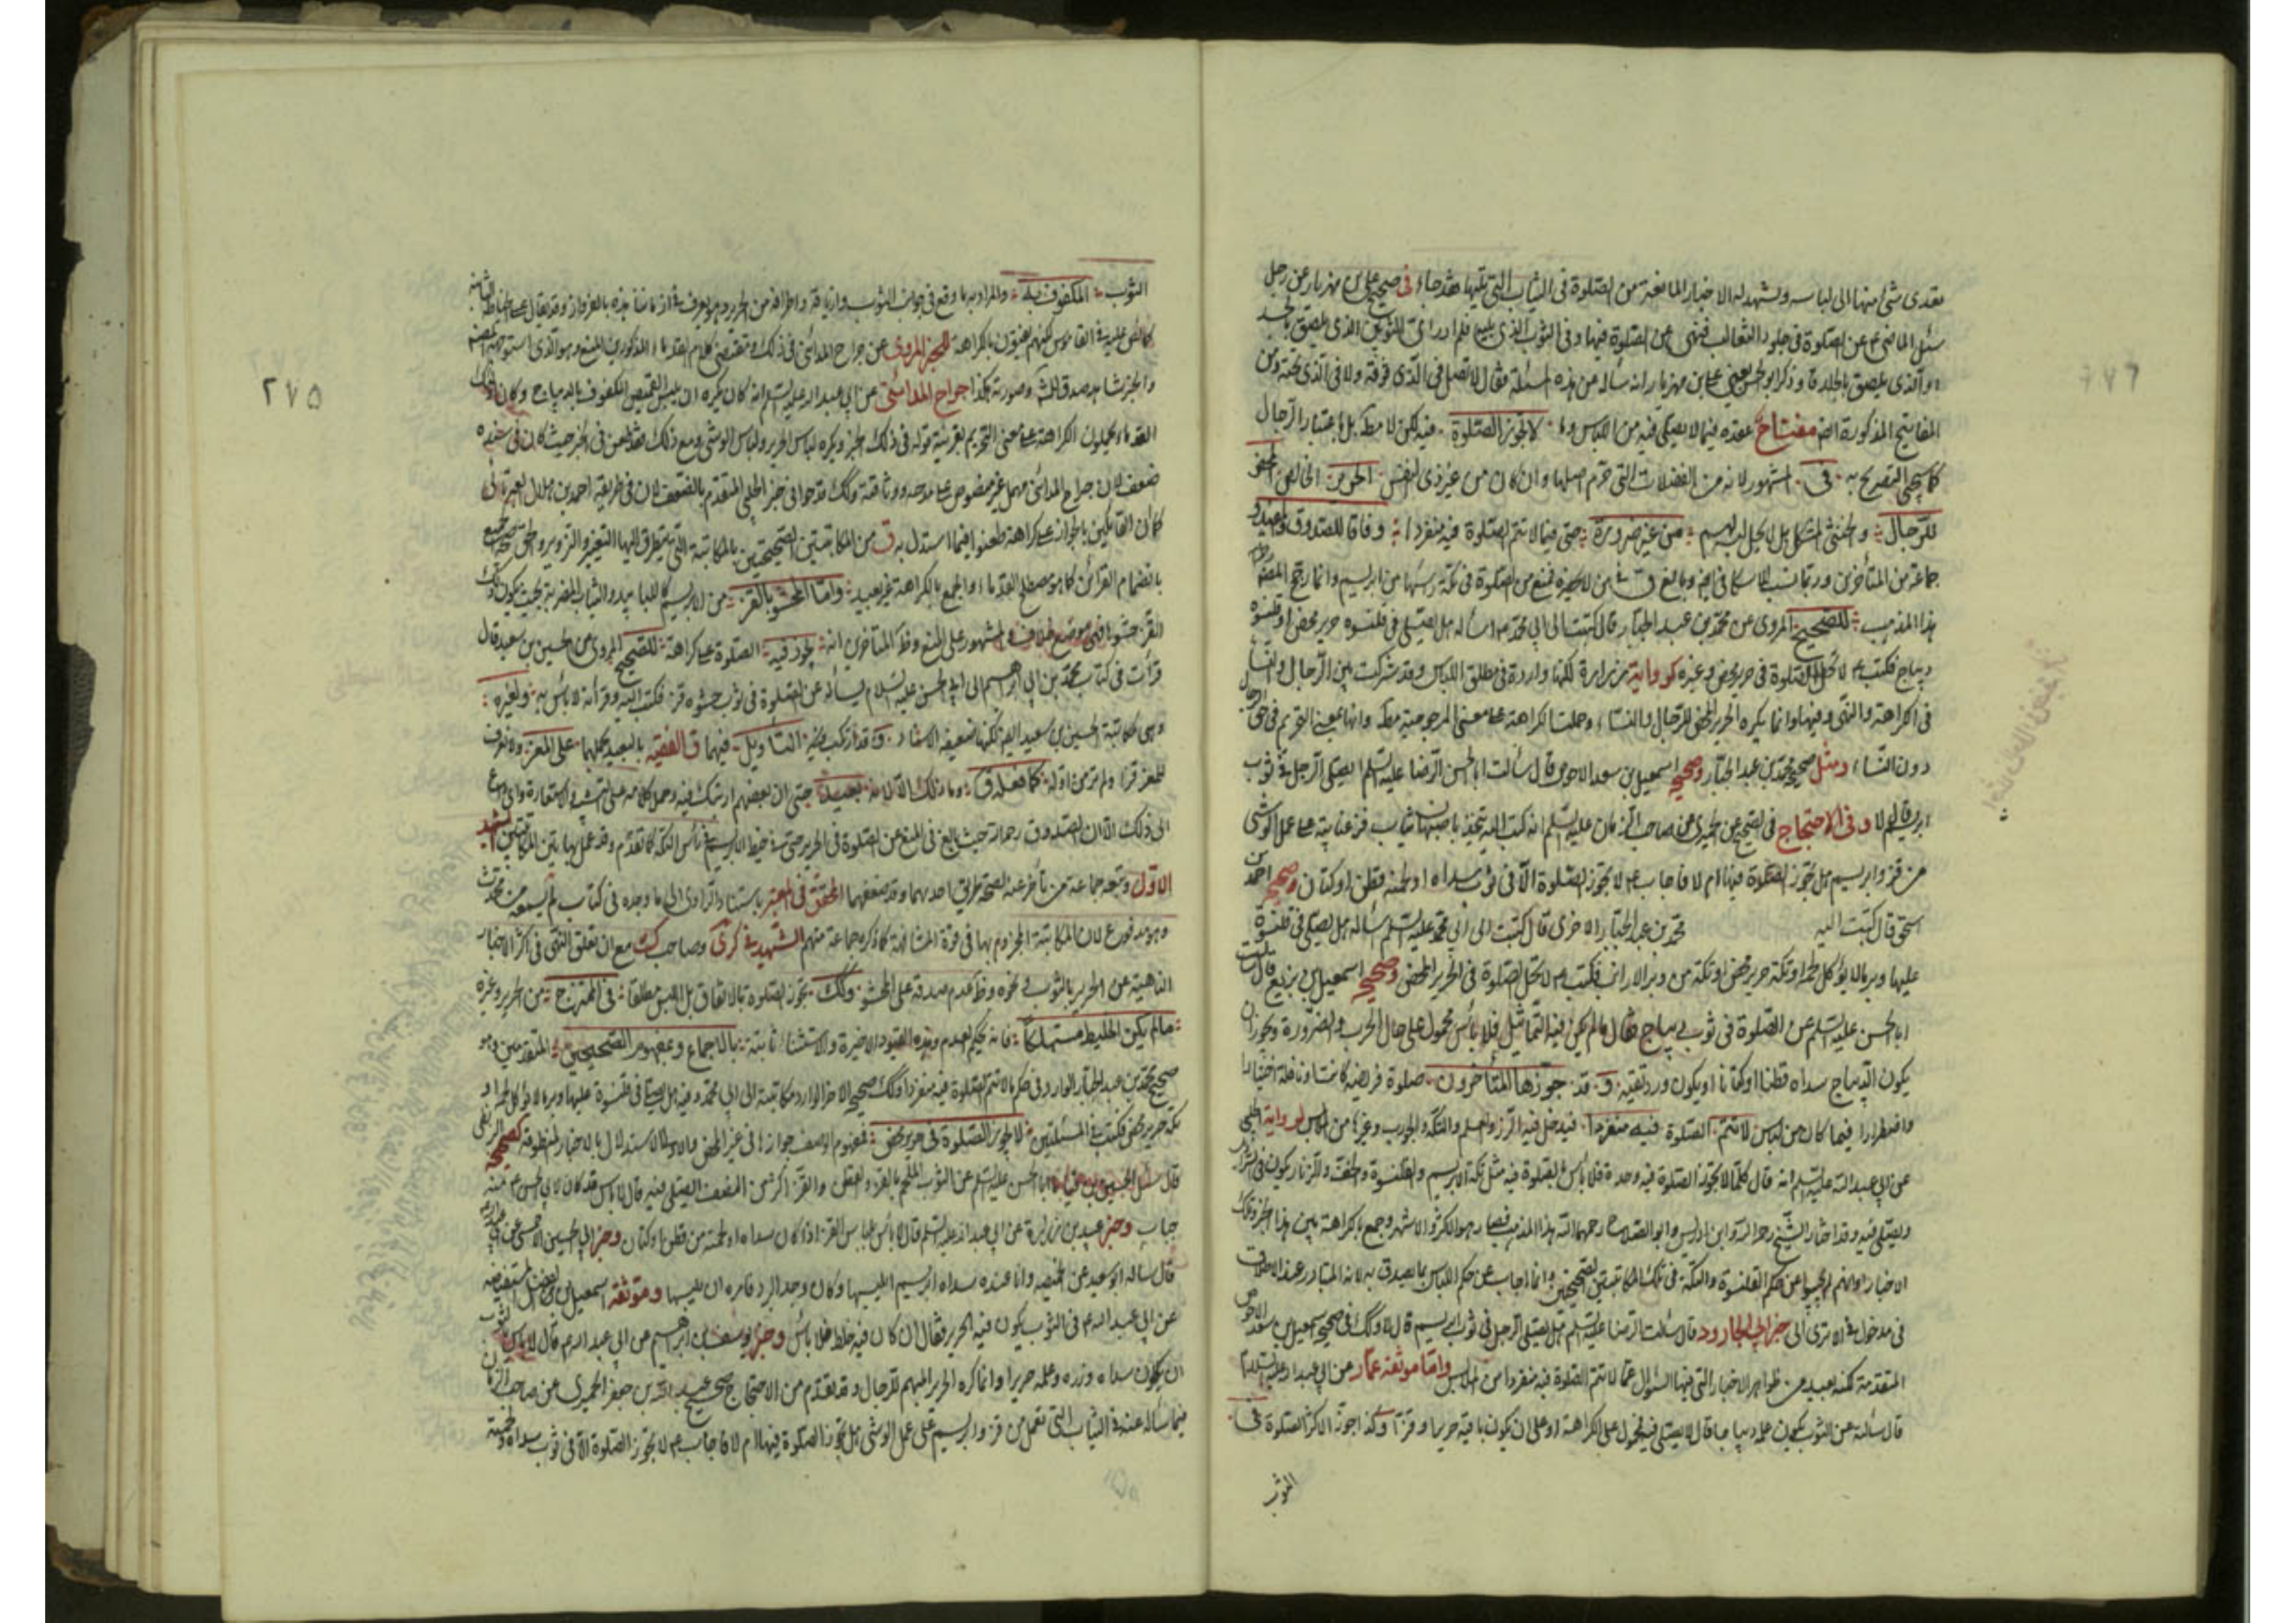 تعدى شئ منها الى لباسه ويشهد له الاخبار المانعة من الصلوة فى الثياب التى تليها فقد جاء فى صحيح على بن مهزيار عن رجل
سئل الماضى ع عن الصلوة فى جلود الثعالب فنهى عن الصلوة فيها وفى الثوب الذى يليه فلم ادر اى الثوبين الذى يلصق بالجلد
او الذى يلصق بالجلد وذكر ابو الحسن يعنى على بن مهزيار انه سأله عن هذه المسئلة فقال لا تصل فى الذى فوقه ولا فى الذى تحته ومن
المفاتيح المذكورة مفتاح عقده فيما لا يصلى فيه من اللباس لا تجوز الصلوة فيه لكن لا مطلقا بل باعتبار الرجال
كما سيجئ التصريح به فى المشهور لانه من الفضلات التى حرم اصلها وان كان من غير ذى النفس الحرير الخالص المحض
للرجال والخنثى المشكل بل لا يحل لبسه لهم من غير ضرورة حتى فيما لا تتم الصلوة فيه منفردا وفاقا للصدوق والمفيد و
جماعة من المتأخرين وربما نسب للاسكافى وبالغ فمنع من الصلوة فى تكة رأسها من ابريسم وانما رجح المصنف
هذا المذهب للصحيح المروى عن محمد بن عبد الجبار قال كتبت الى ابى محمد ع اسأله هل يصلى فى قلنسوة حرير محض او قلنسوة
ديباج فكتب ع لا تحل الصلوة فى حرير محض وغيره كرواية زرارة لكنها واردة فى مطلق اللباس وقد شركت بين الرجال والنساء
فى الكراهة والنهى وفيها وانما يكره الحرير المحض للرجال والنساء وحملت الكراهة على معنى المرجوحية مطلقا وانها بمعنى التحريم فى حق الرجال
دون النساء ومثل صحيح محمد بن عبد الجبار وصحيح اسمعيل بن سعد الاحوص قال سألت ابا الحسن الرضا عليه السلم ايصلى الرجل فى ثوب
ابريسم قال لا وفى الاحتجاج فى الصحيح عن الحميرى عن صاحب الزمان عليه السلم انه كتب اليه يتخذ باصبهان ثياب فز عتابية على عمل الوشى
من قز وابريسم هل تجوز الصلوة فيها ام لا فاجاب ع لا تجوز الصلوة الا فى ثوب سداه او لحمته قطن او كتان وصحيح احمد بن
اسحق قال كتبت اليه محمد بن عبد الجبار الاخرى قال كتبت الى ابى محمد عليه السلم اسأله هل يصلى فى قلنسوة
عليها وبر ما لا يؤكل لحمه او تكة حرير محض او تكة من وبر الارانب فكتب ع لا تحل الصلوة فى الحرير المحض وصحيح اسمعيل بن بزيع قال سألت
ابا الحسن عليه السلم عن الصلوة فى ثوب ديباج فقال ما لم يكن فيه التماثيل فلا بأس محمول على حال الحرب والضرورة ويجوز ان
يكون الديباج سداه قطنا او كتانا او يكون ورد تقية و قد جوزها المتأخرون صلوة فريضة كانت او نافلة اختيارا
واضطرارا فيما كان من لباس لا تتم الصلوة فيه منفردا فيدخل فيه الزر والعلم والتكة والجورب وغيرها من اللباس لرواية الحلبى
عن ابى عبد الله عليه السلم انه قال كلما لا تجوز الصلوة فيه وحده فلا بأس بالصلوة فيه مثل تكة الابريسم والقلنسوة والخف والزنار يكون فى السراويل
ويصلى فيه وقد اختار الشيخ رحمه الله وابن ادريس وابو الصلاح رحمهما الله هذا المذهب فصار هو الاكثر والاشهر وجمع بالكراهة بين هذا الخبر وتلك
الاخبار او انهم لم يجيبوا عن حكم القلنسوة والتكة فى تلك المكاتبتين الصحيحتين وانما اجاب عن حكم اللباس بما يصدق به لانه المتبادر عند الاطلاق
فى مدخول فى الا ترى الى خبر ابى الجارود قال سألت الرضا عليه السلم هل يصلى الرجل فى ثوب ابريسم قال لا وكذا فى صحيح اسمعيل بن سعد الاحوص
المتقدمة لكنه بعيد من ظواهر الاخبار التى فيها السؤال عما لا تتم الصلوة فيه منفردا من الملابس واما موثقة عمار عن ابى عبد الله عليه السلام
قال سألته عن الثوب يكون علمه ديباجا قال لا يصلى فيه فمحمول على الكراهة او على ان يكون باقيه حريرا وقزا وكذا جوز الاكثر الصلوة فى
الثوب
٢٧٥
الثوب المكفوف به والمراد به ما وقع فى جوانب الثوب وازياقه واطرافه من الحرير
كما نص عليه فى القاموس لكنهم يعبرون بالكراهة للخبر المروى عن جراح المداينى فى ذلك
جراح المداينى عن ابى عبد الله عليه السلم انه كان يكره ان يلبس القميص المكفوف بالديباج وكان
القدماء يحملون الكراهة على معنى التحريم بقرينة قوله فى ذلك الخبر ويكره لباس الحرير ولباس الوشى ومع ذلك فقد طعن فى الخبر حيث كان فى سنده
ضعف لان جراح المداينى مهمل غير منصوص على مدحه ووثاقته وكذلك قدحوا فى خبر الحلبى المتقدم بالضعف لان فى طريقه احمد بن هلال العبرتائى
كما ان القائلين بالجواز على كراهة طعنوا فيما استدل به ق من المكاتبتين الصحيحتين بالمكاتبة التى يتطرق اليها التغيير والتزوير
بانضمام القرائن كما هو مصطلح القدماء والجمع بالكراهة غير بعيد واما المحشو بالقز من الابريسم
القز حشوا فهى موضع خلاف والمشهور على المنع وظاهر المتأخرين انه يجوز فيه الصلوة على كراهة للصحيح المروى عن الحسين بن سعيد قال
قرأت فى كتاب محمد بن ابراهيم الى ابى الحسن عليه السلام يسأله عن الصلوة فى ثوب حشوه قز فكتب اليه وقرأته لا بأس به ولغيره
وهى مكاتبة الحسين بن سعيد ايضا لكنها ضعيفة الاسناد وقد ارتكب فيه التأويل فيهما ق الفقيه بالبعيد يحملهما على المعز ولا نعرف
للمعز قزا ولم نر من اوله كما فعله ق وما ذلك الا لانه بعيد حتى ان بعضهم
الى ذلك الا ان الصدوق رحمه الله حيث بالغ فى المنع عن الصلوة فى الحرير حتى فى خيط الابريسم فى رأس التكة كما تقدم وقد عمل بهاتين المكاتبتين الشهيد
الاول وتبعه جماعة من تأخر عنه لصحة طريق احديهما وقد ضعفهما المحقق فى المعتبر باستناد الراوى الى ما وجده فى كتاب لم يسمعه من محدث
وهو مدفوع لان المكاتبة المجزوم بها فى قوة المشافهة كما ذكره جماعة منهم الشهيد فى كرى وصاحب ك مع ان تعلق النهى فى اكثر الاخبار
الناهية عن الحرير بالثوب ونحوه وظاهر عدم صدقه على الحشو وكذلك تجوز الصلوة بالاتفاق بل اللبس مطلقا فى الممتزج من الحرير وغيره
ما لم يكن الخليط مستهلكا فانه بحكم العدم وهذه القيود الاخيرة والاستثناء ثابتة بالاجماع ومفهوم الصحيحين المتقدمين وهو
صحيح محمد بن عبد الجبار الوارد فى حكم ما لا تتم الصلوة فيه منفردا وكذلك صحيح الاخر الوارد مكاتبة الى ابى محمد وفيه هل يصلى فى قلنسوة عليها وبر ما لا يؤكل لحمه او
تكة حرير محض فكتب فى المسئلتين لا تجوز الصلوة فى حرير محض فمفهوم الوصف جوازها فى غير المحض
قال سئل الحسين بن قياما ابا الحسن عليه السلم عن الثوب الملحم بالقز والقطن والقز اكثر من النصف ايصلى فيه قال لا بأس قد كان لابى الحسن ع منه
جباب وخبر عبيد بن زرارة عن ابى عبد الله عليه السلم قال لا بأس بلباس القز اذا كان سداه او لحمته من قطن او كتان وخبر ابى الحسن الاحمسى عن ابى عبد الله ع
قال سأله ابو سعيد عن الخميصة وانا عنده سداه ابريسم ايلبسها وكان وجد البرد فامره ان يلبسها وموثقة اسمعيل بن الفضل
عن ابى عبد الله ع فى الثوب يكون فيه الحرير فقال ان كان فيه خلط فلا بأس وخبر يوسف بن ابرهيم عن ابى عبد الله ع قال لا بأس بالثوب
ان يكون سداه وزره وعلمه حريرا وانما كره الحرير المبهم للرجال وقد تقدم من الاحتجاج صحيح عبد الله بن جعفر الحميرى عن صاحب الزمان
فيما سأله عنه فى الثياب التى تعمل من قز وابريسم على عمل الوشى هل تجوز الصلوة فيها ام لا فاجاب ع لا تجوز الصلوة الا فى ثوب سداه او لحمته